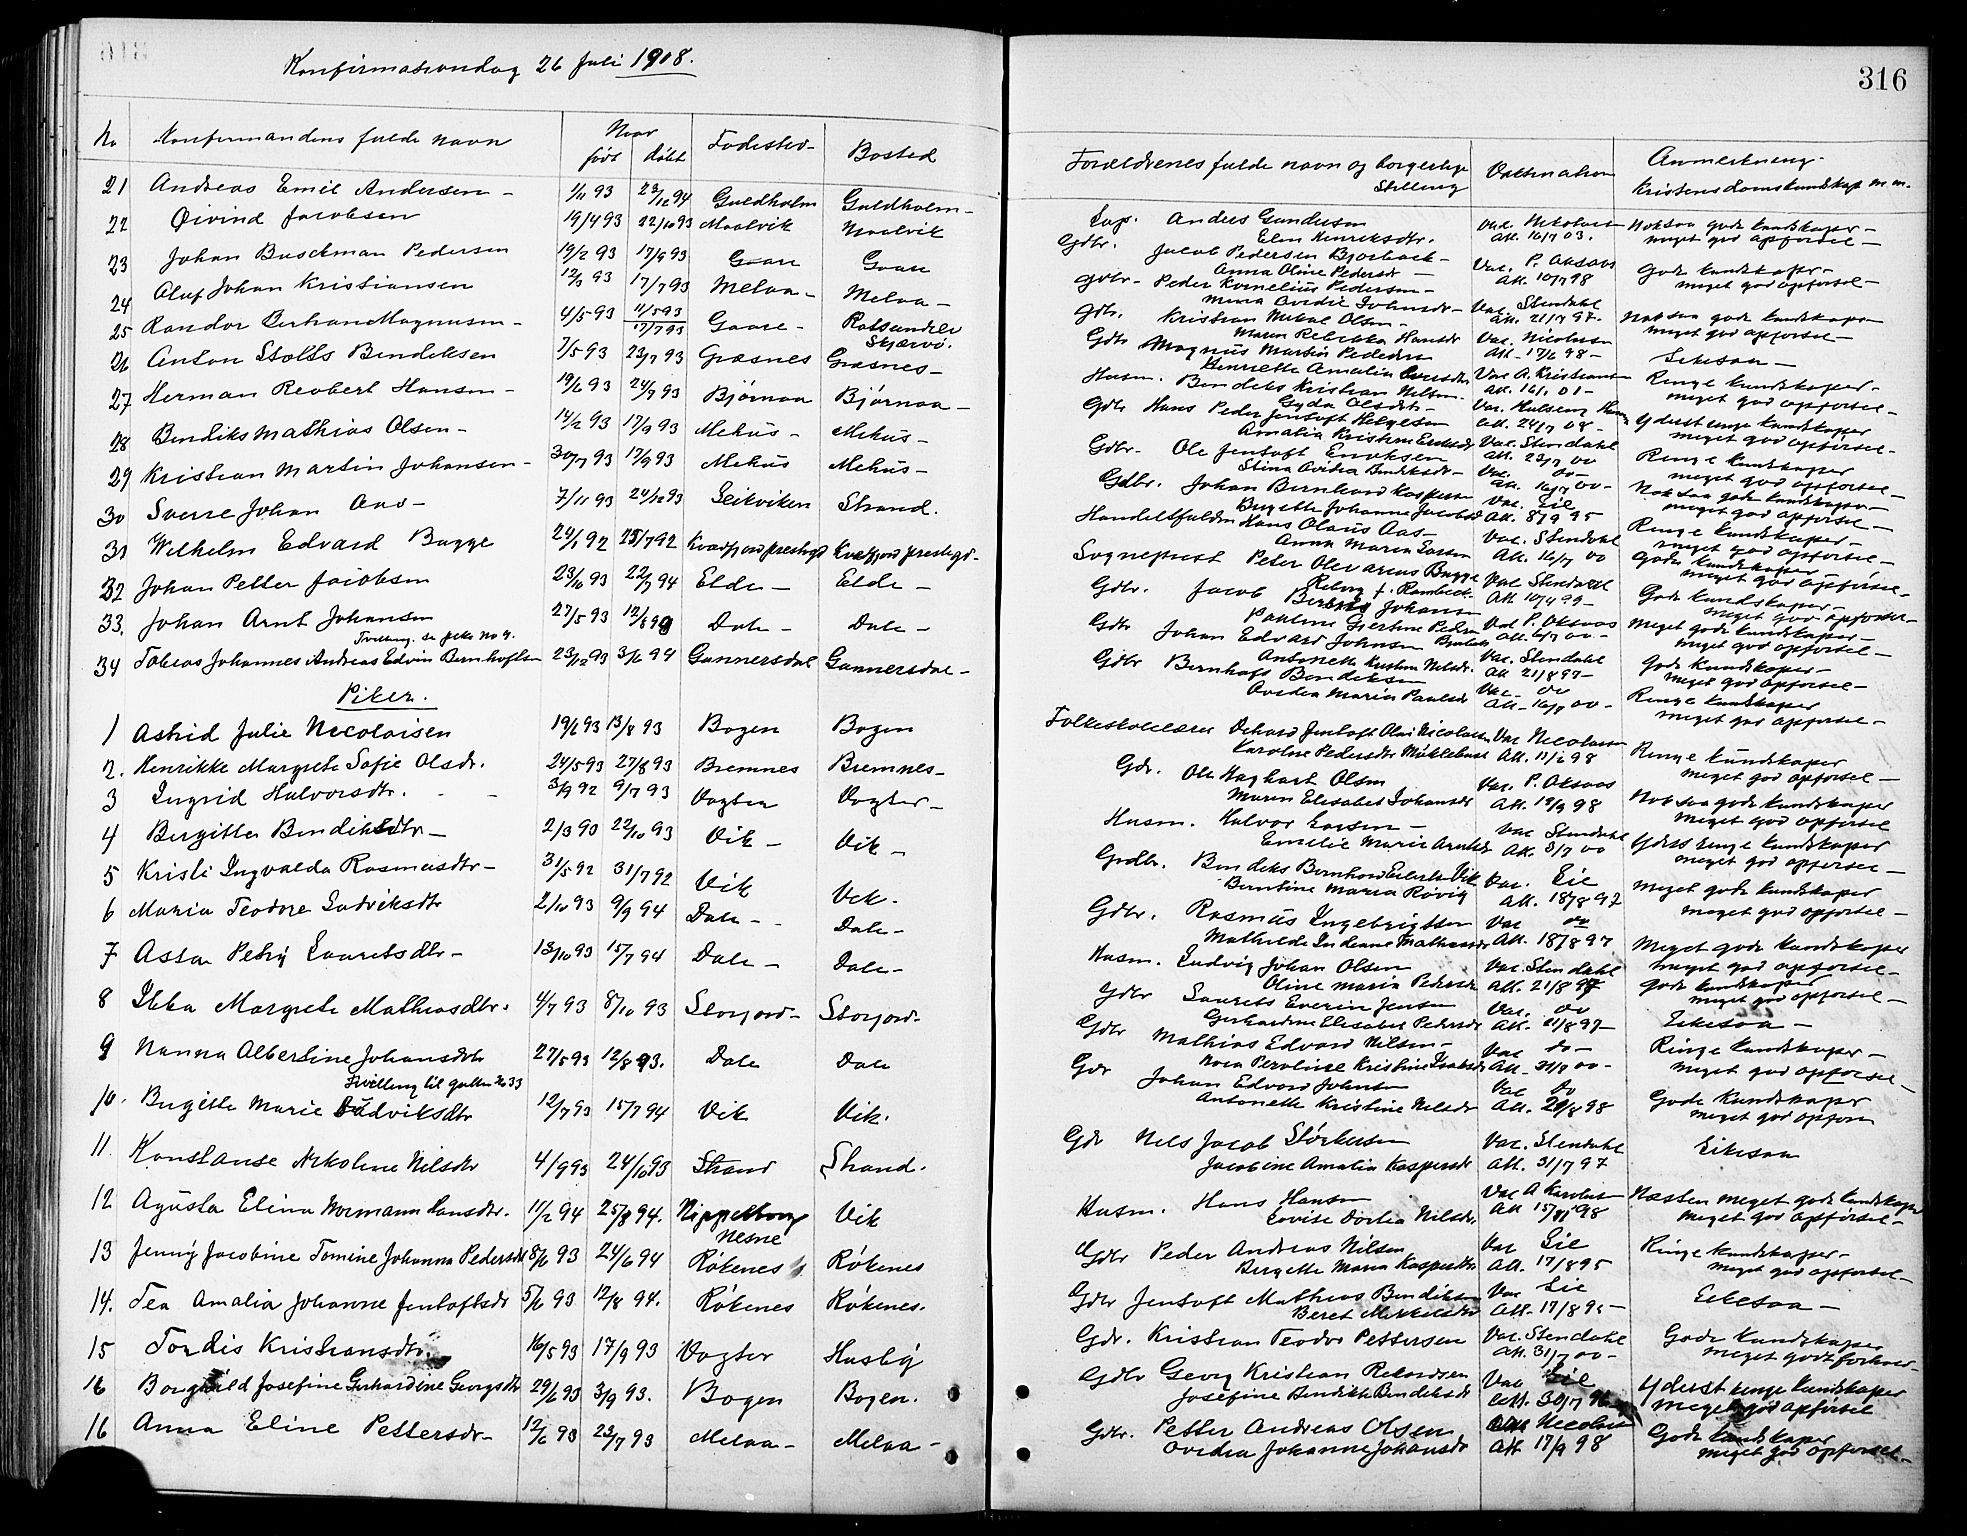 Konfirmationsdag 26 Juli 1908.
No Konfirmandens fulde navn Naar født døbt Fødested Bosted
21 Andreas Emil Andersen – 1/11 93 23/12 94 Guldholm Guldholm –
22 Øivind Jacobsen 19/4 93 22/10 93 Maalvik Maalvik
23 Johan Buschman Pedersen 19/2 93 17/9 93 Gaare Gaare
24 Oluf Johan Kristiansen 12/3 93 17/7 93 Melaa – Melaa –
25 Randor Berhan Magnussen – 4/5 93 11/5 93 17/7 93 Gaare – Rotsundelv Skjærvö.
26 Anton Stolts Bendiksen 7/5 93 23/7 93 Græsnes Græsnes –
27 Herman Reobert Hansen – 19/6 93 24/9 93 Bjørnaa Bjørnaa –
28 Bendiks Mathias Olsen – 14/2 93 17/9 93 Mehus – Mehus –
29 Kristian Martin Johansen – 30/7 93 17/9 93 Mehus Mehus –
30 Sverre Johan Aas – 7/11 93 24/12 93 Leikviken Strand.
31 Wilhelm Edvard Bugge 24/1 92 25/7 92 Kvædfjord prestegd Kvæfjord prestegd. –
32 Johan Petter Jacobsen 23/10 93 22/7 94 Elde – Elde –
33. Johan Arnt Johansen 27/5 93 12/8 93 Dale – Dale –
Tvilling. se pike No 9.
34 Tobias Johannes Andreas Edvin Bernhoftsen 23/12 93 3/6 94 Gunnersdal Gunnersdal –
Piker.
1 Astrid Julie Nicolaisen 19/6 93 13/8 93 Bogen Bogen
2. Henrikke Margrete Sofie Olsdr. 24/5 93 27/8 93 Bremnes Bremnes –
3 Ingrid Halvorsdtr. 3/9 92 9/7 93 Vogter Vogter –
4 Bergitte Bendiksdtr – 2/3 90 22/10 93 Vik – Vik –
5 Kristi Ingvalda Rasmusdtr – 31/5 92 31/7 92 Vik Vik –
6 Maria Teodore Ludviksdtr 2/10 93 9/9 94 Dale – Dale –
7 Asta Petrij Lauritsdtr – 13/10 93 15/7 94 Dale – Dale –
8 Ebba Margrete Mathiasdtr. 4/7 93 8/10 93 Storjord – Storjord –
9 Nanna Albertine Johansdtr 27/5 93 12/8 93. Dale Dale
Tvilling til gutten No 33
10. Birgitte Marie Ludviksdtr 12/7 93 15/7 94 Vik Vik.
11 Konstanse Nikoline Nilsdtr 4/9 93 24/10 93 Strand Strand.
12 Agusta Elina Normann Hansdtr. 11/2 94 25/8 94. Nesne Vik
13 Jenny Jacobine Tomine Johanna Pedersdtr 8/6 93 24/6 94 Røkenes Røkenes
14. Tea Amalia Johanne Jentoftsdr 5/6 93 12/8 94. Røkenes Røkenes.
15 Tordis Kristiansdtr 16/5 93 17/9 93 Vogter Husby
16 Borghild Josefine Gerhardine Georgsdtr 29/6 93 3/9 93. Bogen Bogen.
16 Anna Eline Pettersdr – 12/6 93 23/7 93 Melaa – Melaa –
316
Forældrenes fulde navn og borgerlige Stilling Vaksination Anmerkning Kristendomskundskap m. m.
Anders Gundersen Vac. Nikolaisen Noksaa gode kundskaper –
Elen Henriksdtr. Att. 16/7 03. meget god opførsel –
Gdbr. Jacob Pedersen Bjorbæck – Vac. P. Aksaas Gode kundskaper –
Anna Oline Pedersdr – Att. 10/7 98 meget god opførsel –
Gdbr – Peder Kornelius Pedersen – Vac. Stendahl Noksaa gode kundskaper
Mina Ovedie Johansdr – Att. 21/7 97. meget god opførsel –
Gdb. Kristian Mikal Olsen – Vac. Nicolaisen Likesaa –
Maren Rebekka Hansdr Att – 17/6 98 –
Gdbr Magnus Martin Pedersen Vac A. Kristiansen Ringe kundskaper –
Henriette Amalia Att. 16/1 01 – meget god opførsel –
Husm. Bendiks Kristian Nilsen – Yderst ringe kundskaper
Gyda Olsdtr – Att. 24/7 08 – meget god opførsel –
Gdbr Hans Peder Jentoft Helgesen Vac. Stendahl Ringe kundskaper
Amalia Kristine Att. 23/7 00 meget god opførsel –
Gdbr. Ole Jentoft Enoksen Vac. do – Noksaa gode kundskaper –
Stina Ovidia Bendiksdr – Att. 16/7 00 – meget god opførsel –
Gdbr. Johan Bernhard Kaspersen Vac. Lie Ringe kundskaper –
Birgitte Johanne Jacobsd Att. 8/9 95 meget god opførsel –
Hans Olaus Aas – Vac. Stendahl Gode kundskaper
Anna Maria Att. 16/7 00 meget god opførsel –
Sogneprest Peter Olevarius Bugge Vac Stendahl Gode kundskaper –
f. Rambeck Att 10/4 99 – meget god opførsel –
Gdbr. Jacob Johansen Vac P. Aksaas Meget gode kundskaper –
Pauline Gjertine Att. 6/7 00 – meget god opførsel –
Gdbr Johan Edvard Johnsen Vac. Stendahl Gode kundskaper –
Antonette Kristine Nilsdr. Att 21/8 97 – meget god opførsel –
Gdbr Bernhoft Bendiksen Vac – do Ringe kundskaper
Ovedia Maria Paulsdr Att – 16/7 00 – meget god opførsel –
Folkeskolelærer Jentoft Olai Nicolaisen Vac Nicolaisen Ringe kundskaper
Karoline Pedersdtr Møklebust Att. 11/6 98 meget god opførsel –
Gdr. Ole Haghart Olsen Vac. P. Aksaas Noksaa gode kundskaper
Maren Elisabet Johansdr Att. 19/9 98 meget god opførsel
Husm. Halvor Larsen – Vac Stendahl Yderst ringe kundskaper
Emelie Marie Att. 3/7 00 meget god opførsel –
Grdbr. Bendiks Bernhard Vik Vac. Lie Meget gode kundskaper
Berntine Maria Røvig Att. 18/8 97 meget god opførsel –
Gdbr. Rasmus Ingebrigtsen Vac do Meget gode kundskaper
Mathilde Indiane Att. 18/8 97 meget god opførsel –
Husm. Ludvig Johan Olsen Vac. Stendahl Gode kundskaper
Oline Maria Pedersdr Att. 21/8 97 meget god opførsel –
Gdbr Laurits Everin Jensen Vac. do Likesaa –
Gerhardine Elisabet Pedersdr Att. 21/8 97 –
Gdbr Mathias Edvard Nilsen – Vac do – Ringe kundskaper –
Nora Peroline Kristine Att – 31/7 00 – meget god opførsel –
Gdr Johan Edvard Johnsen Vac do Gode kundskaper
Antonette Kristine Nilsdr Att. 21/8 98 meget god opførs
Gdr Nils Jacob Størkersen Vac. Stendahl Likesaa
Jacobine Amalia Kaspersdr Att. 31/7 97
Husm. Hans Hansen Næsten meget gode kundskaper
Lovise Dortea Nilsdr. Att 15/8 98 meget god opførsel –
Gdbr Peder Andreas Nilsen Vac Lie Ringe kundskaper –
Bergette Maria Kaspersdtr Att. 17/8 95 meget god opførsel –
Gdbr Jentoft Mathias Bendiksen Vac Lie Likesaa –
Beret Mikkelsdtr Att. 17/8 95 –
Gdr. Kristian Teodor Pettersen Vac. Stendahl Gode kundskaper
Att. 31/7 00 – meget godt forhold –
Gdbr Georg Kristian Vac Lie Yderst ringe kundskaper
Josefine Bendikte Bendiksdr Att. 30/7 96 meget god opførsel
Gdbr. Petter Andreas Olsen Nicolaisen Gode kundskaper
Ovedia Johanne Johansdr Att 17/9 98 meget god opførsel –